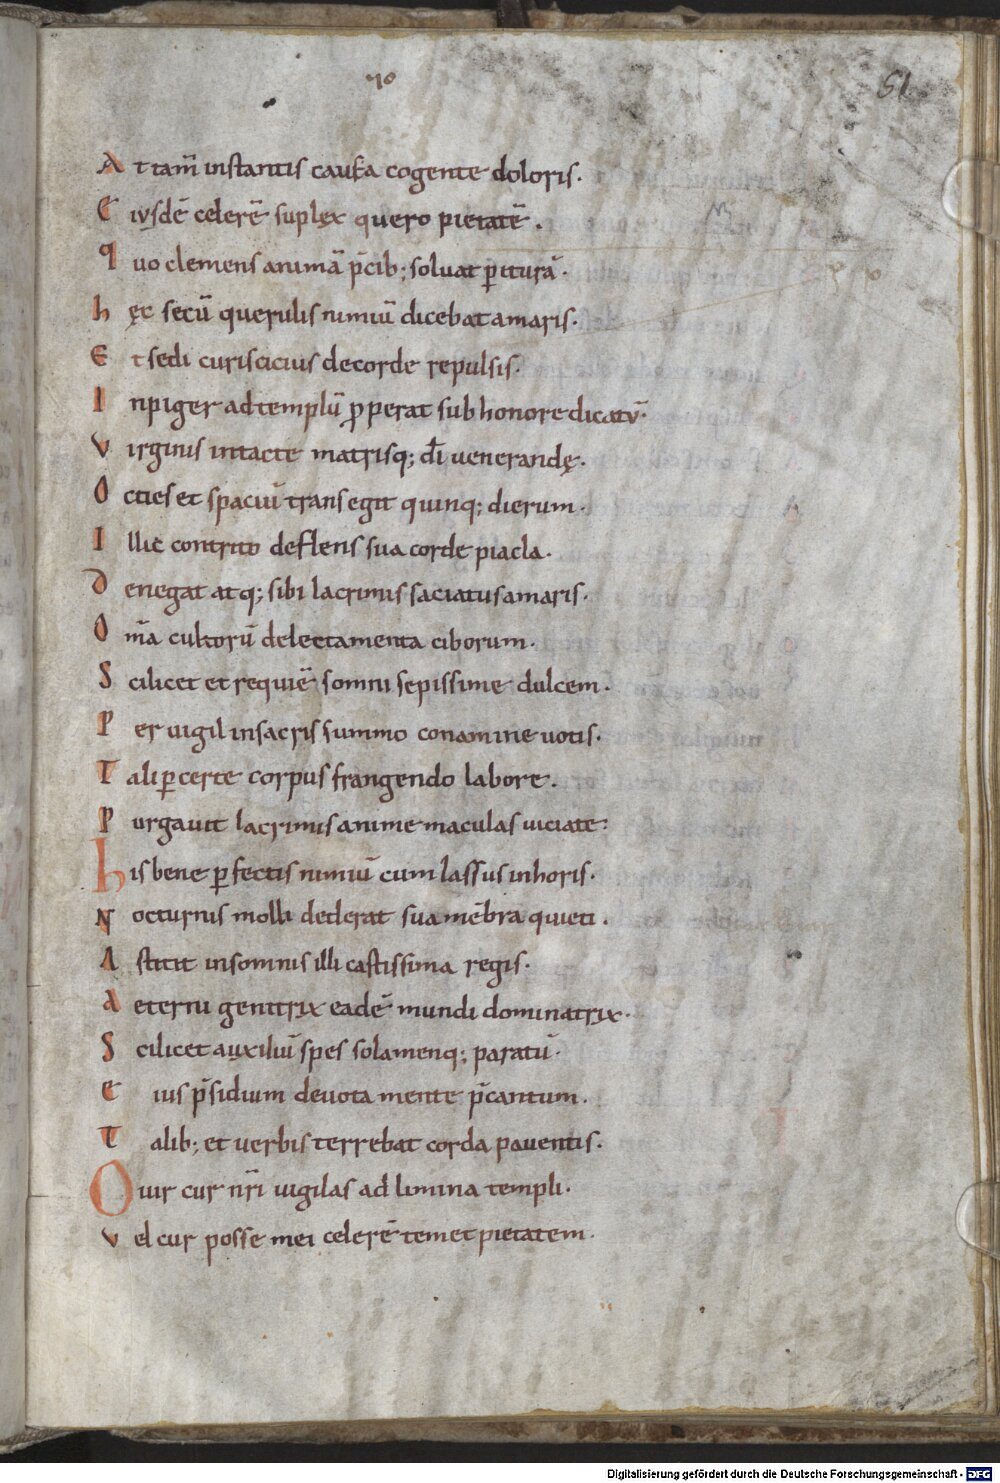 70
51
A ttam̄ instantis causa cogente doloris.
E iusdē celerē suplex quero pietatē.
q uo clemens animā p̄cib; soluat ꝑiturā.
h ęc secū querulis nimiū dicebat amaris.
E t sedi curis cicius de corde repulsis.
I npiger ad templū ꝓperat sub honore dicatū.
V irginis intacte matrisq; dī uenerandę.
O cties et spaciū transegit quinq; dierum.
I llic contrito deflens sua corde piacla.
d enegat atq; sibi lacrimis saciatus amaris.
O m̄a cultorū delectamenta ciborum.
S cilicet et requiē somni sepissime dulcem.
P er uigil in sacris summo conamine uotis.
T ali ꝑ certe corpus frangendo labore.
P urgauit lacrimis anime maculas uiciate.
h is bene ꝑfectis nimiū cum lassus in horis.
N octurnis molli dederat sua mēbra quieti.
A stitit in somnis illi castissima regis.
A eterni genitrix eadē mundi dominatrix.
S cilicet auxiliū spes solamenq; paratū.
E ius p̄sidium deuota mente p̄cantum.
T alib; et uerbis terrebat corda pauentis.
O uir cur nr̄i uigilas ad limina templi.
V el cur posse mei celerē temet pietatem.
Digitalisierung gefördert durch die Deutsche Forschungsgemeinschaft - DFG